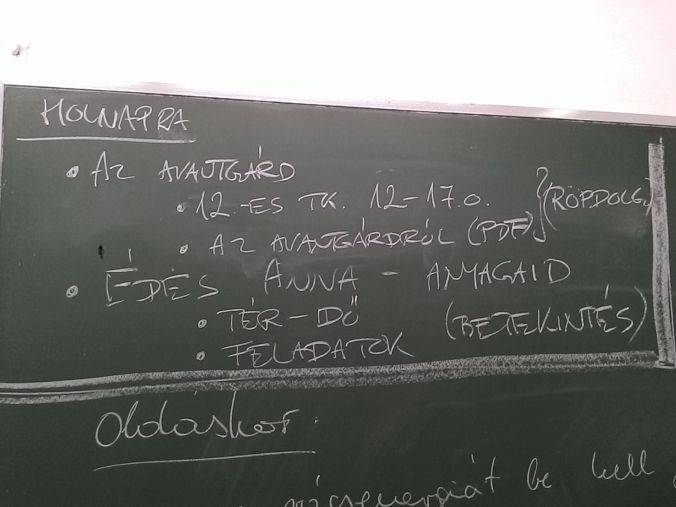 HOLNAPRA
• AZ AVANTGÁRD
• 12.-ES TK. 12-17.O. } (RÖPDOLG.)
• AZ AVANTGÁRDRÓL (PDF)
• ÉDES ANNA - ANYAGAID
• TÉR-IDŐ (BETEKINTÉS)
• FELADATOK
Oldáskor:
be kell